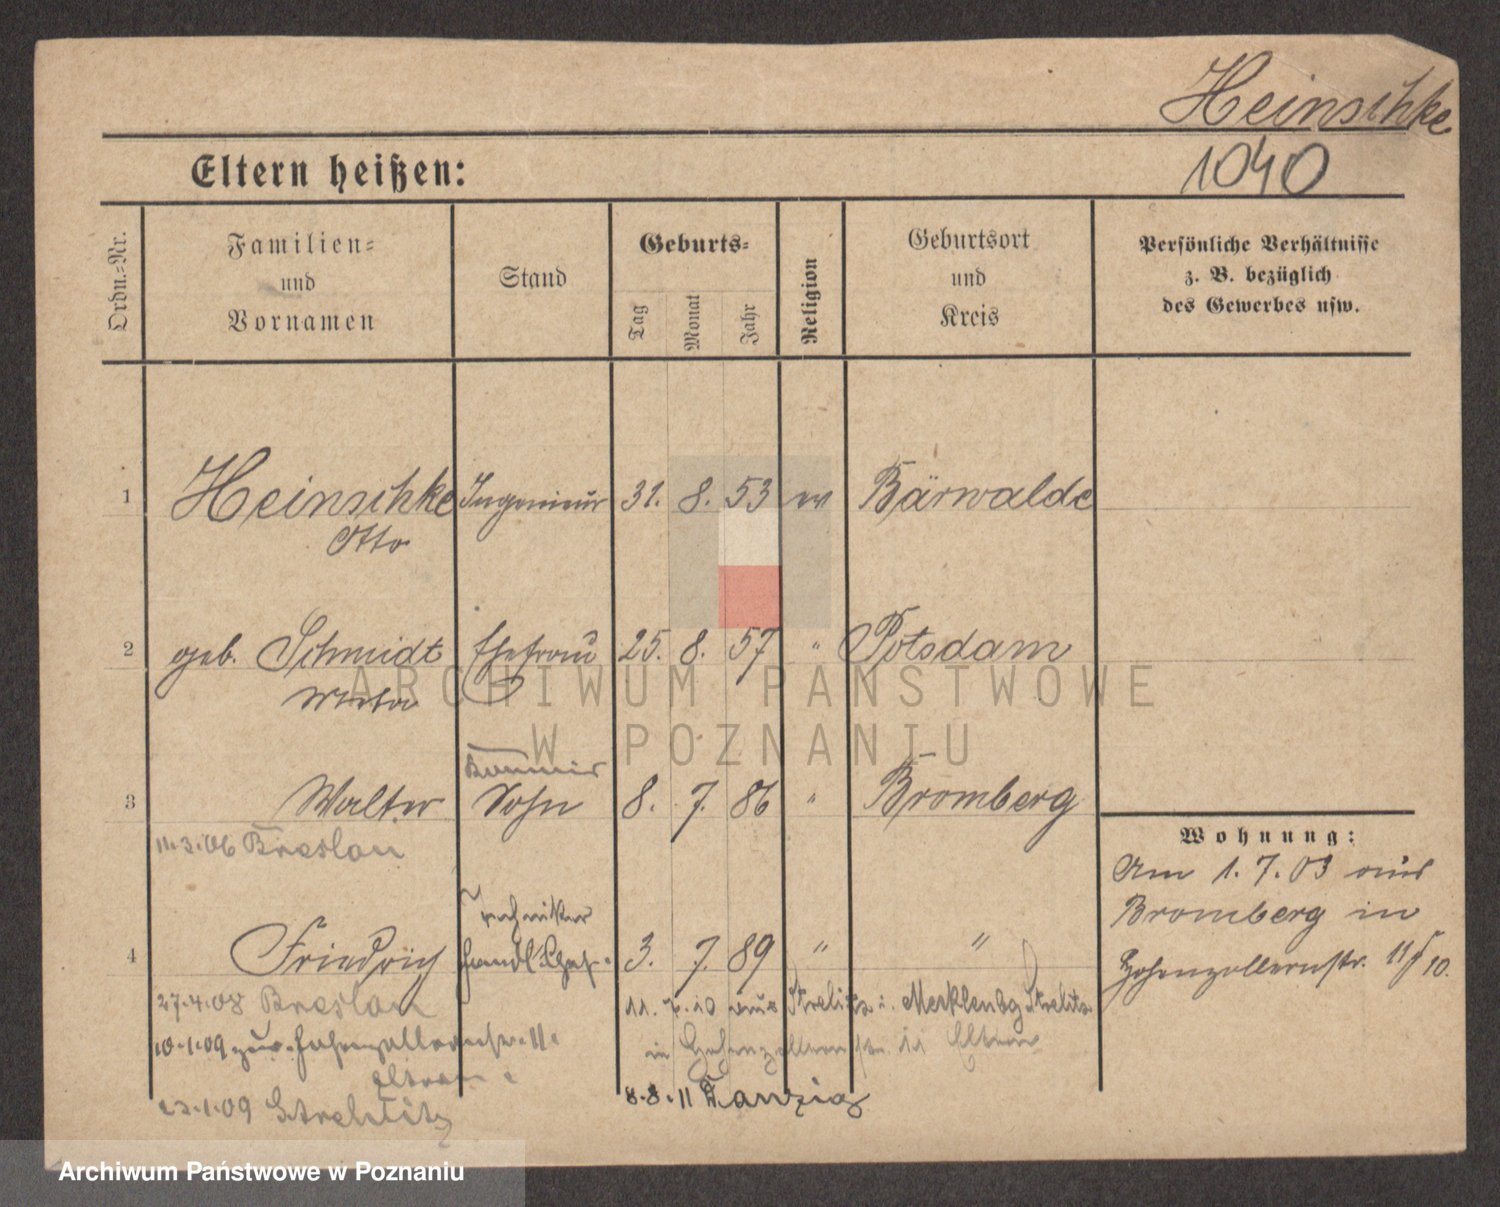 Heinschke
1040
Eltern heißen:
Ordn.=Nr.
Familien=
und
Vornamen
Stand
Geburts=
Tag
Monat
Jahr
Religion
Geburtsort
und
Kreis
Persönliche Verhältnisse
z. B. bezüglich
des Gewerbes usw.
1 Heinschke Ingenieur 31. 8. 53 ev Bärwalde
Otto
2 geb. Schmidt Ehefrau 25. 8. 57 " Potsdam
ARCHIWUM PAŃSTWOWE
W POZNANIU
3 Walter Sohn 8. 7. 86 " Bromberg
11.3.06 Breslau
Wohnung:
Am 1.7.03 aus
Bromberg in
Hohenzollernstr. 11/I 10.
Techniker
4 Friedrich 3. 7. 89 " "
27.4.08 Breslau
11. 7. 10 aus Strelitz i. Mecklenbg Strelitz
10.1.09 zur. Hohenzollernstr. 11.
in Hohenzollernstr. 11 Eltern
Eltern
23.1.09 Strelitz
8.8.11 Danzig
Archiwum Państwowe w Poznaniu